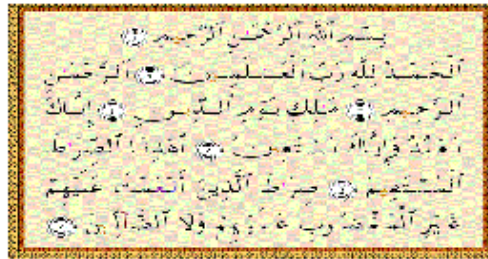 بِسْمِ ٱللَّهِ ٱلرَّحْمَٰنِ ٱلرَّحِيمِ ۝
ٱلْحَمْدُ لِلَّهِ رَبِّ ٱلْعَٰلَمِينَ ۝ ٱلرَّحْمَٰنِ
ٱلرَّحِيمِ ۝ مَٰلِكِ يَوْمِ ٱلدِّينِ ۝ إِيَّاكَ
نَعْبُدُ وَإِيَّاكَ نَسْتَعِينُ ۝ ٱهْدِنَا ٱلصِّرَٰطَ
ٱلْمُسْتَقِيمَ ۝ صِرَٰطَ ٱلَّذِينَ أَنْعَمْتَ عَلَيْهِمْ
غَيْرِ ٱلْمَغْضُوبِ عَلَيْهِمْ وَلَا ٱلضَّآلِّينَ ۝